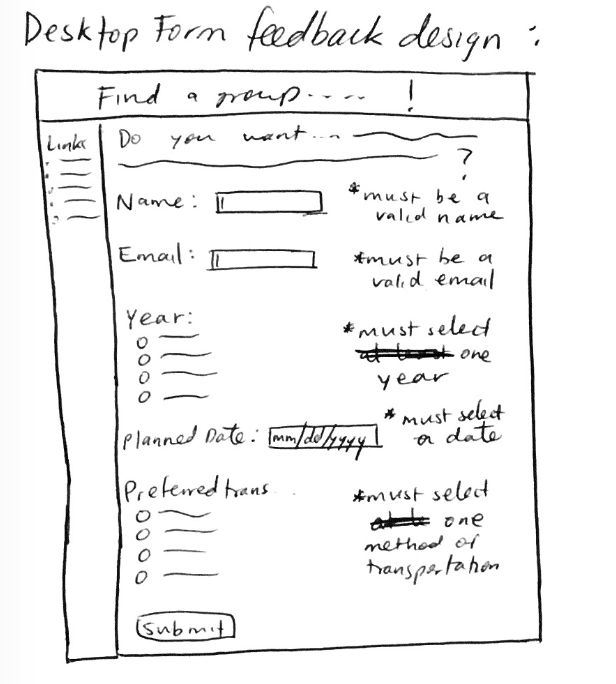 Desktop Form feedback design :
Find a group.... !
Links
Do you want...
?
Name:
*must be a
valid name
Email:
*must be a
valid email
Year:
*must select
at least one
year
Planned Date: mm/dd/yyyy
* must select
a date
Preferred trans
*must select
one
method of
transportation
Submit